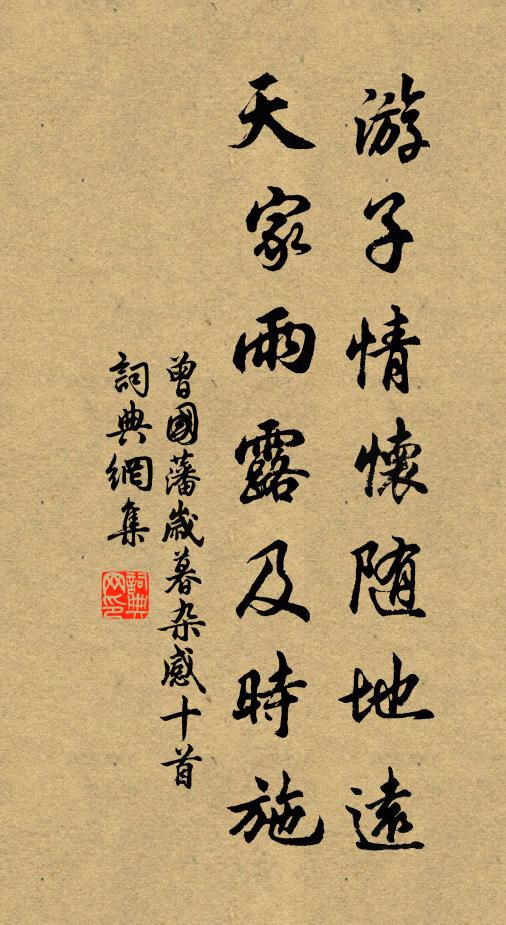 游子情懷随地遠
天家雨露及時施
曾國藩歲暮杂感十首
詞典網集
詞典
网印